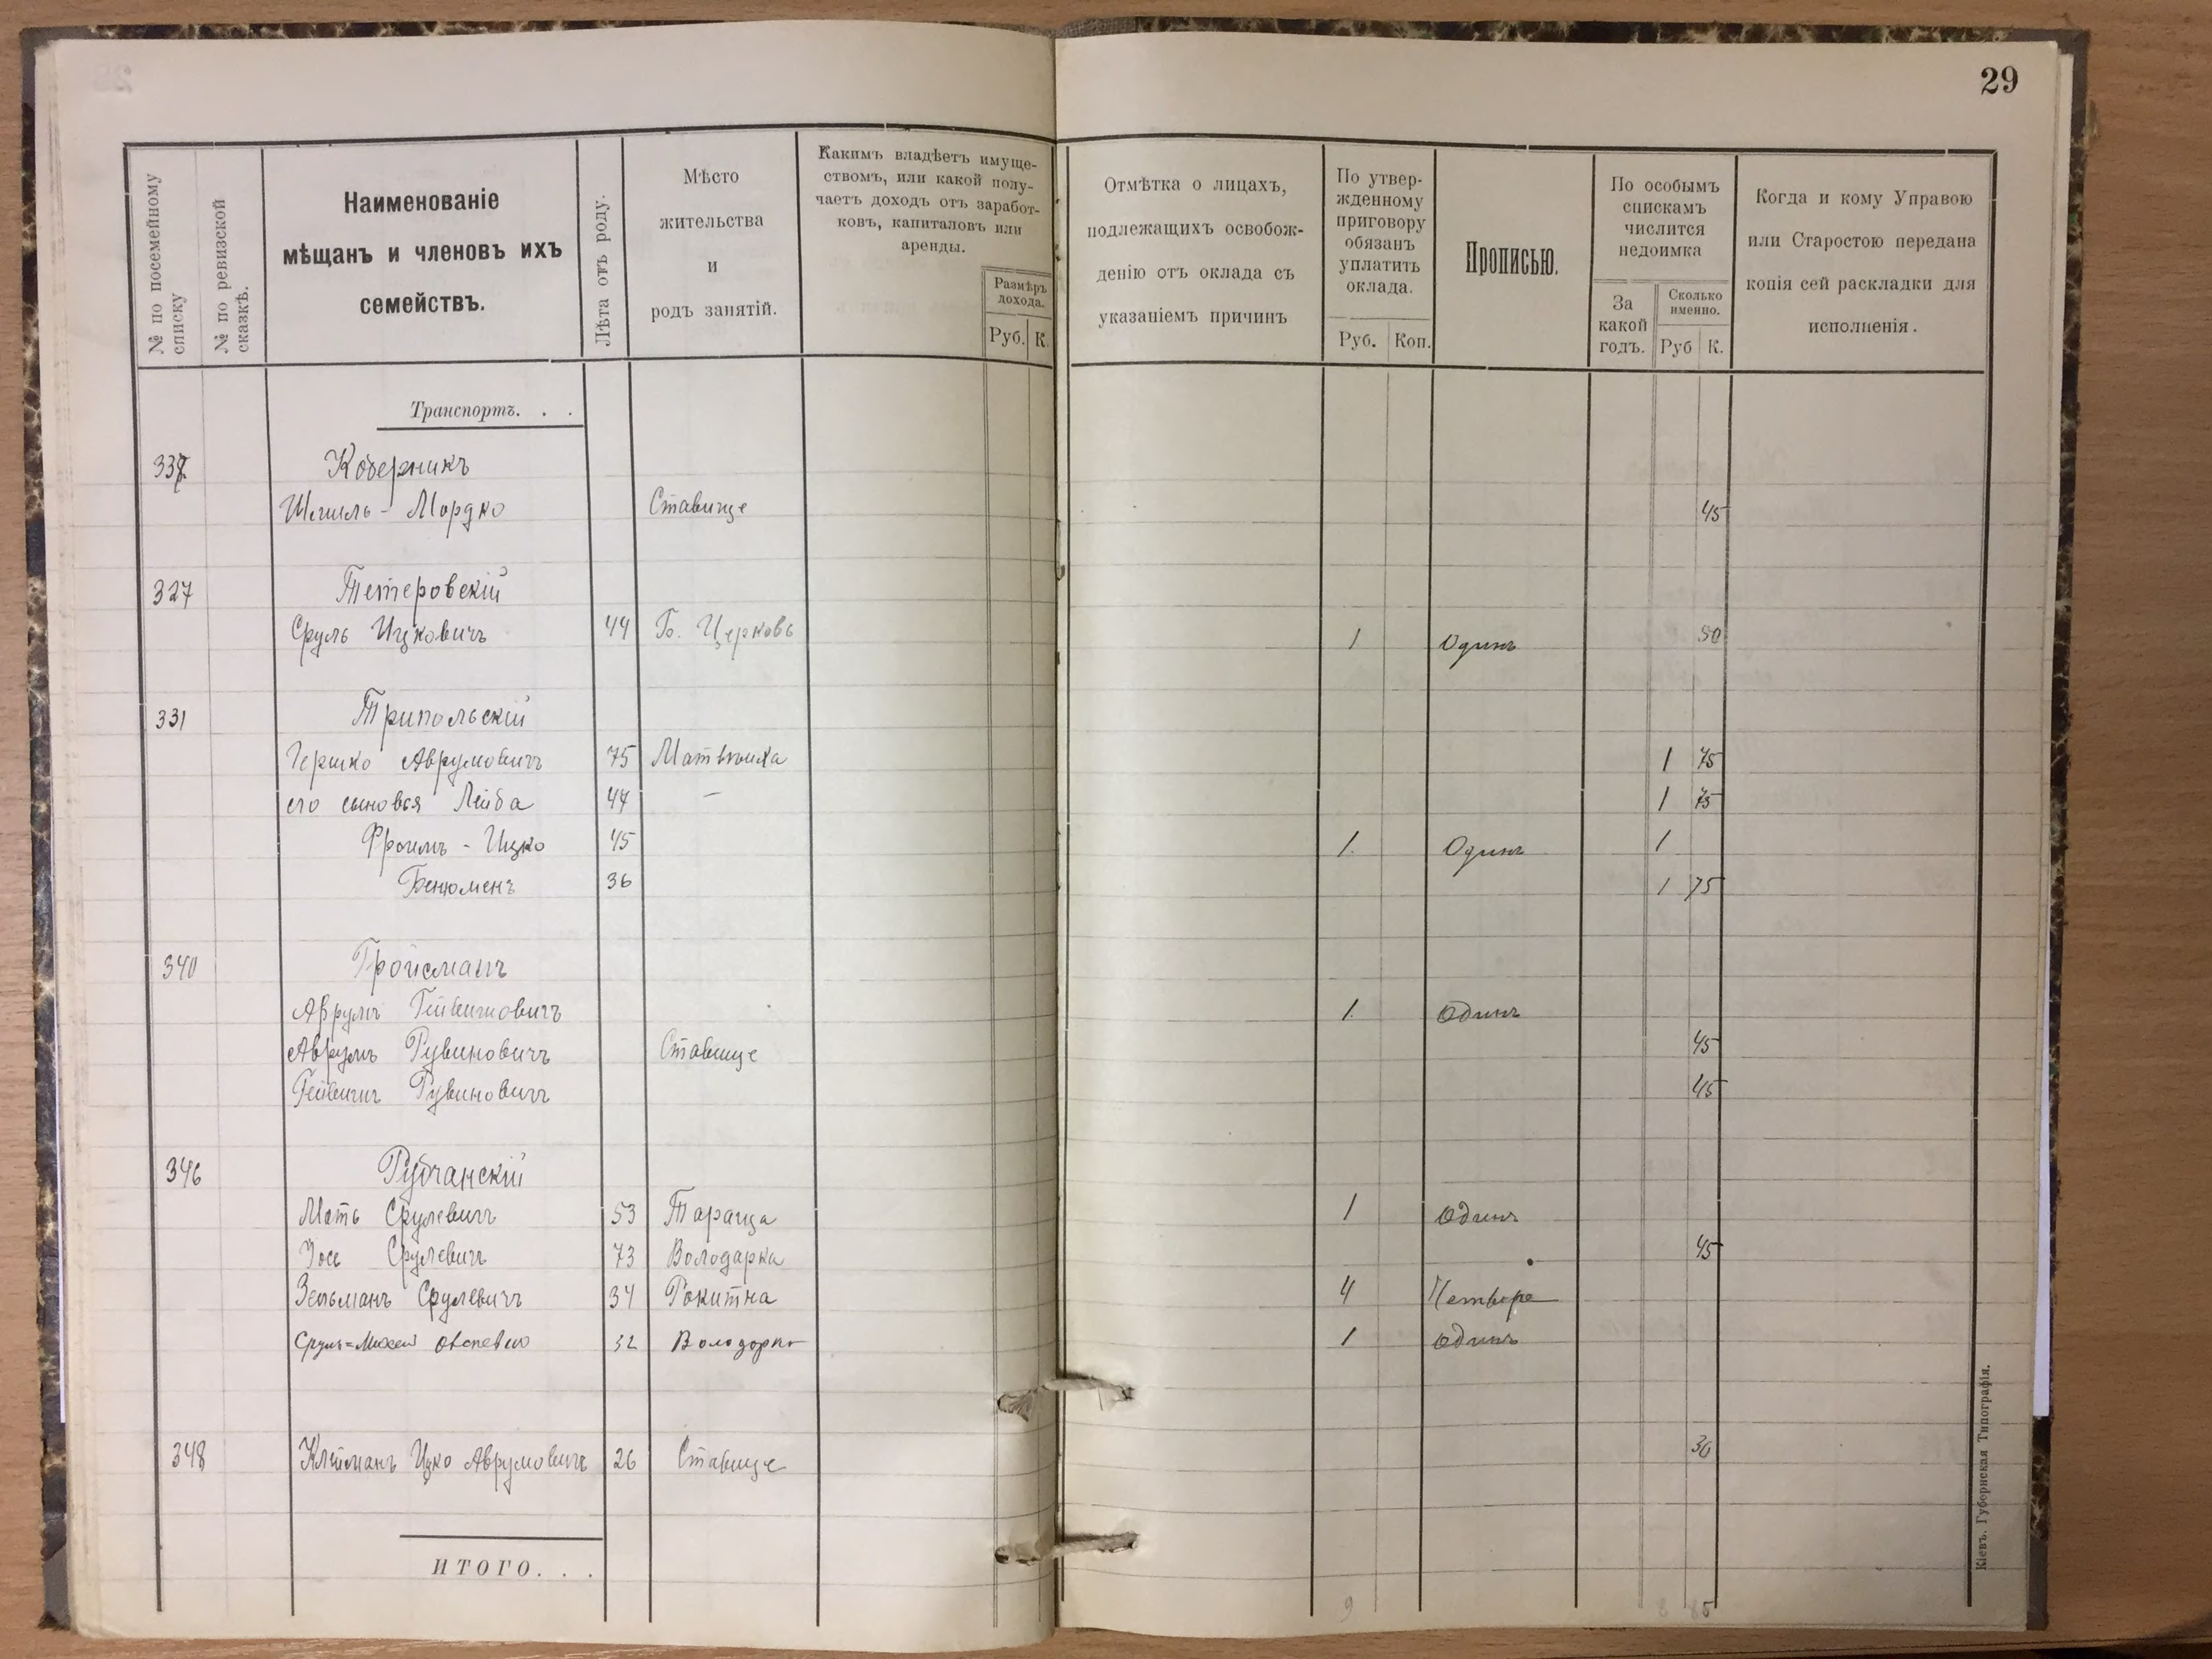 29
№ по посемейному списку
№ по ревизской сказкѣ.
Наименованіе
мѣщанъ и членовъ ихъ
семействъ.
Лѣта отъ роду.
Мѣсто
жительства
и
родъ занятій.
Какимъ владѣетъ имуще-
ствомъ, или какой полу-
чаетъ доходъ отъ заработ-
ковъ, капиталовъ или
аренды.
Размѣръ
дохода.
Руб. К.
Отмѣтка о лицахъ,
подлежащихъ освобож-
денію отъ оклада съ
указаніемъ причинъ
По утвер-
жденному
приговору
обязанъ
уплатить
оклада.
Руб. Коп.
Прописью.
По особымъ
спискамъ
числится
недоимка
За
какой
годъ.
Сколько
именно.
Руб К.
Когда и кому Управою
или Старостою передана
копія сей раскладки для
исполненія.
Транспортъ. . .
337 Коберникъ
Шмиль - Мордко Ставище 45
327 Тетеровскій
Сруль Ицковичъ 44 Б. Церковь 1 Одинъ 50
331 Трипольскій
Гершко Аврумовичъ 75 Матвѣиха 1 75
его сыновья Лейба 47 — 1 75
Фроимъ - Ицко 45 1. Одинъ 1
Бенюменъ 36 1 75
340 Тройсманъ
Аврумъ 1. Одинъ
Аврумъ Рувиновичъ Ставище 45
Рувиновичъ 45
346 Рубчанскій
Мать Срулевичъ 53 Тараща 1 Одинъ
Іось Срулевичъ 73 Володарка 45
Зельманъ Срулевичъ 34 Рокитна 4 Четыре
Сруль=Михель 32 Володарка 1 Одинъ
348 Клейманъ Ицко Аврумовичъ 26 Ставище 30
ИТОГО. . .
9 8 85
Кіевъ. Губернская Типографія.